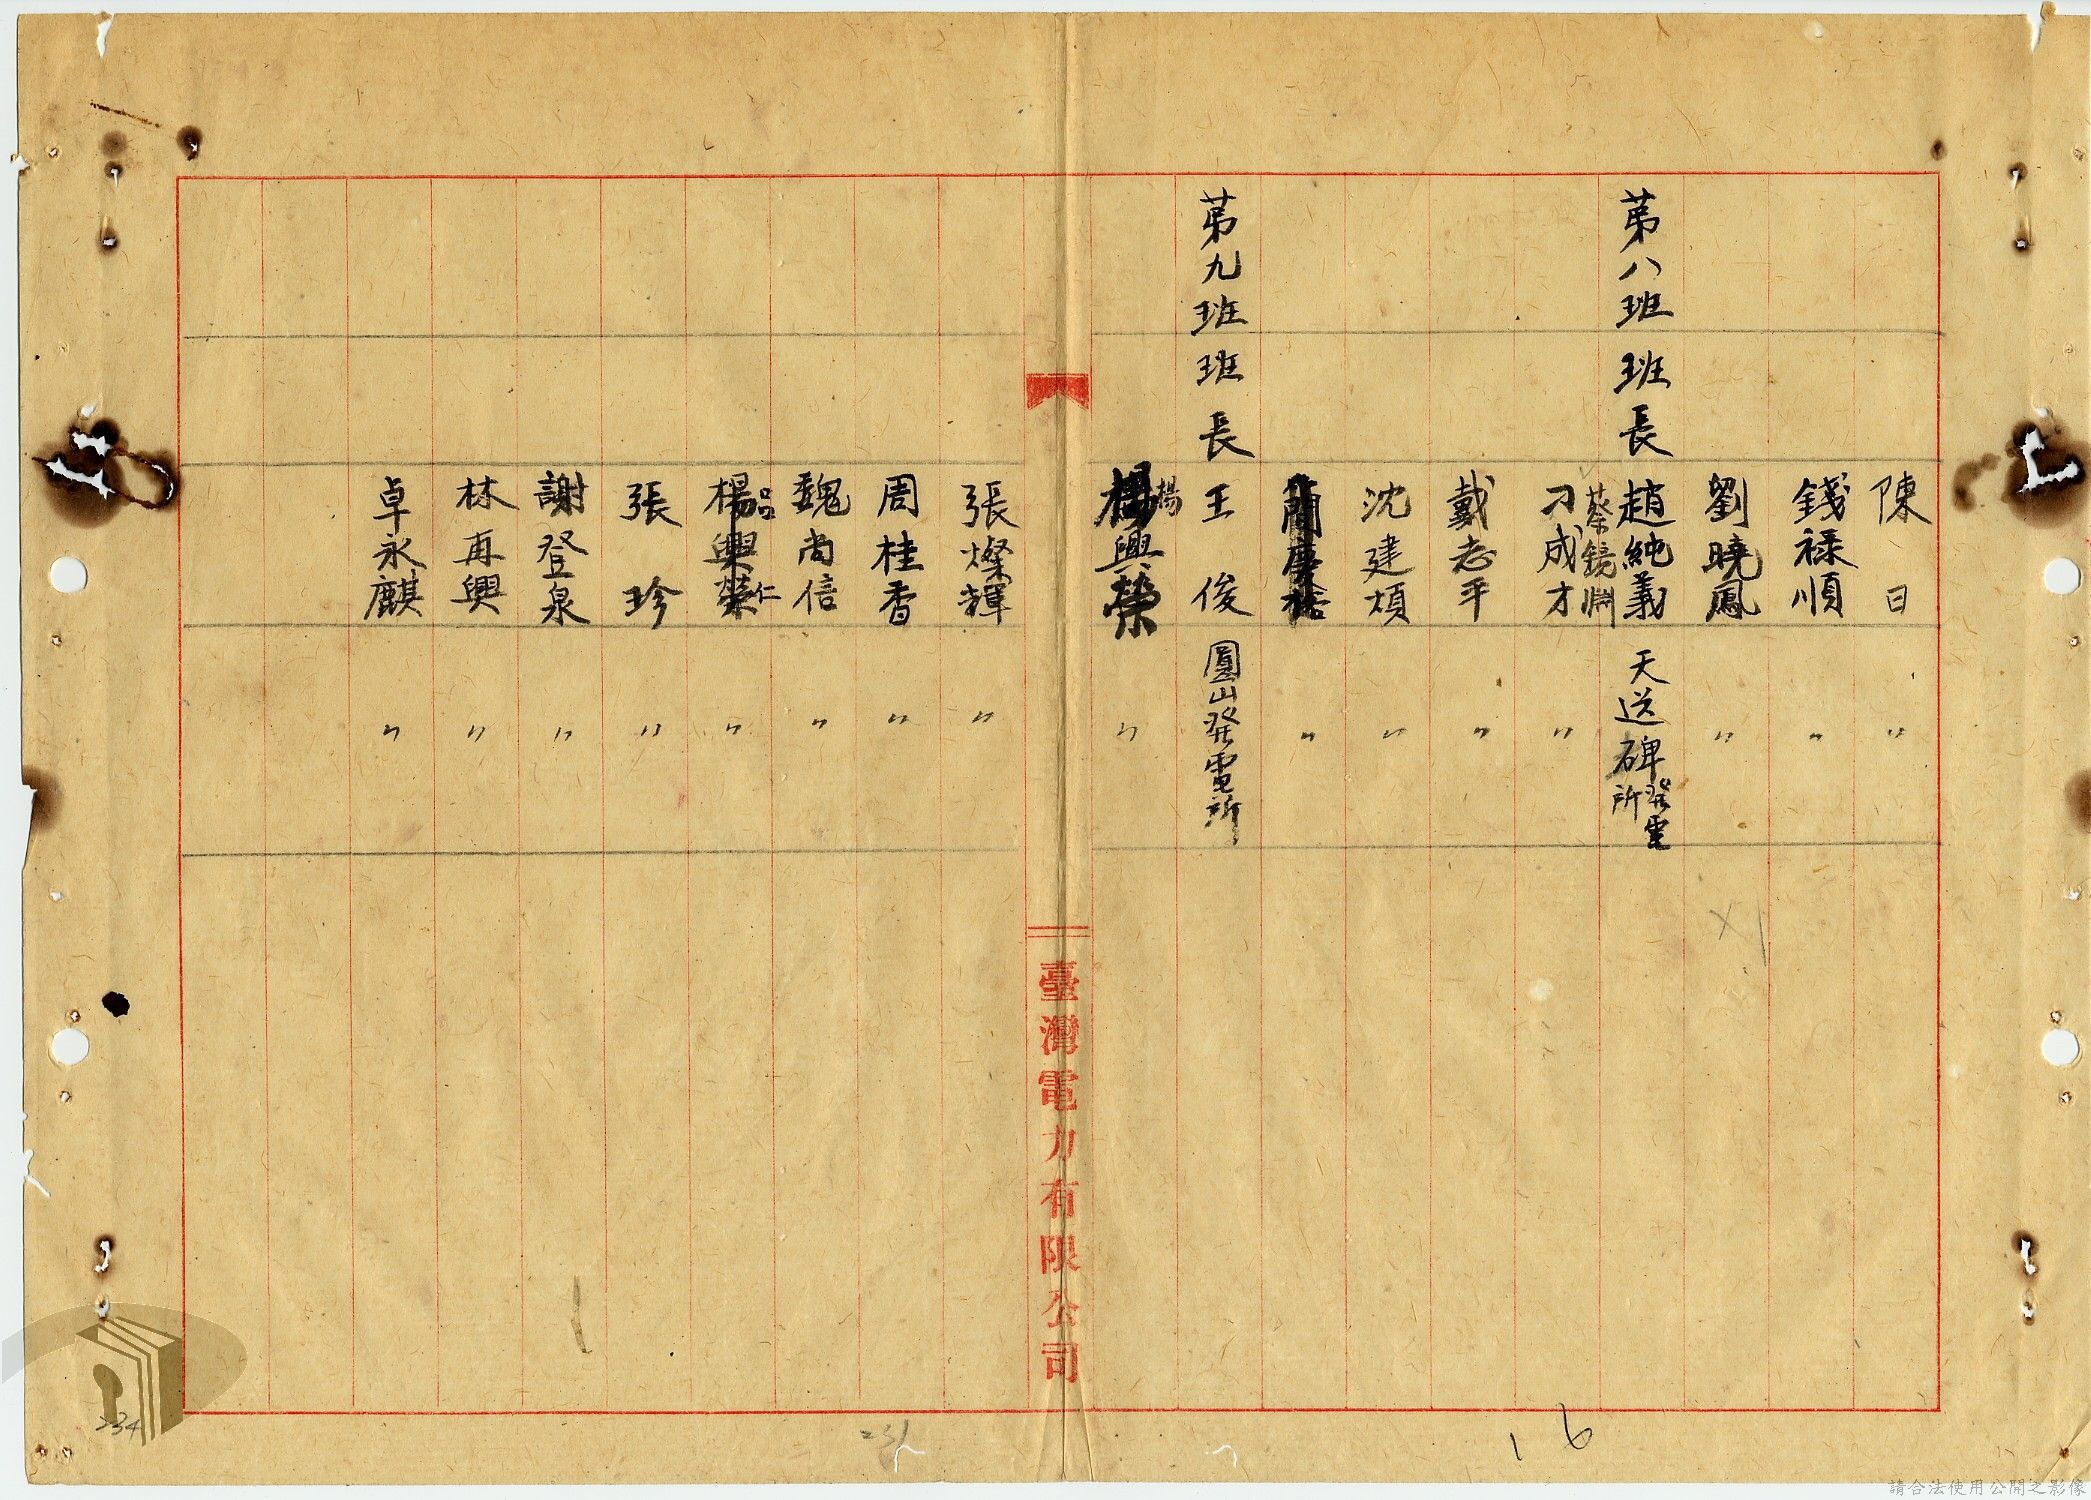 陳日 〃
錢祿順 〃
劉曉鳳 〃
第八班 班長 趙純義 天送碑發電所
蔡鏡淵
刁成才 〃
戴志平 〃
沈建煩 〃
簡慶 〃
第九班 班長 王俊 圓山發電所
楊
楊興榮 〃
臺灣電力有限公司
張燦輝 〃
周桂香 〃
魏尚信 〃
呂 仁
楊興榮 〃
張珍 〃
謝登泉 〃
林再興 〃
卓永麒 〃
16
231
234
請合法使用公開之影像